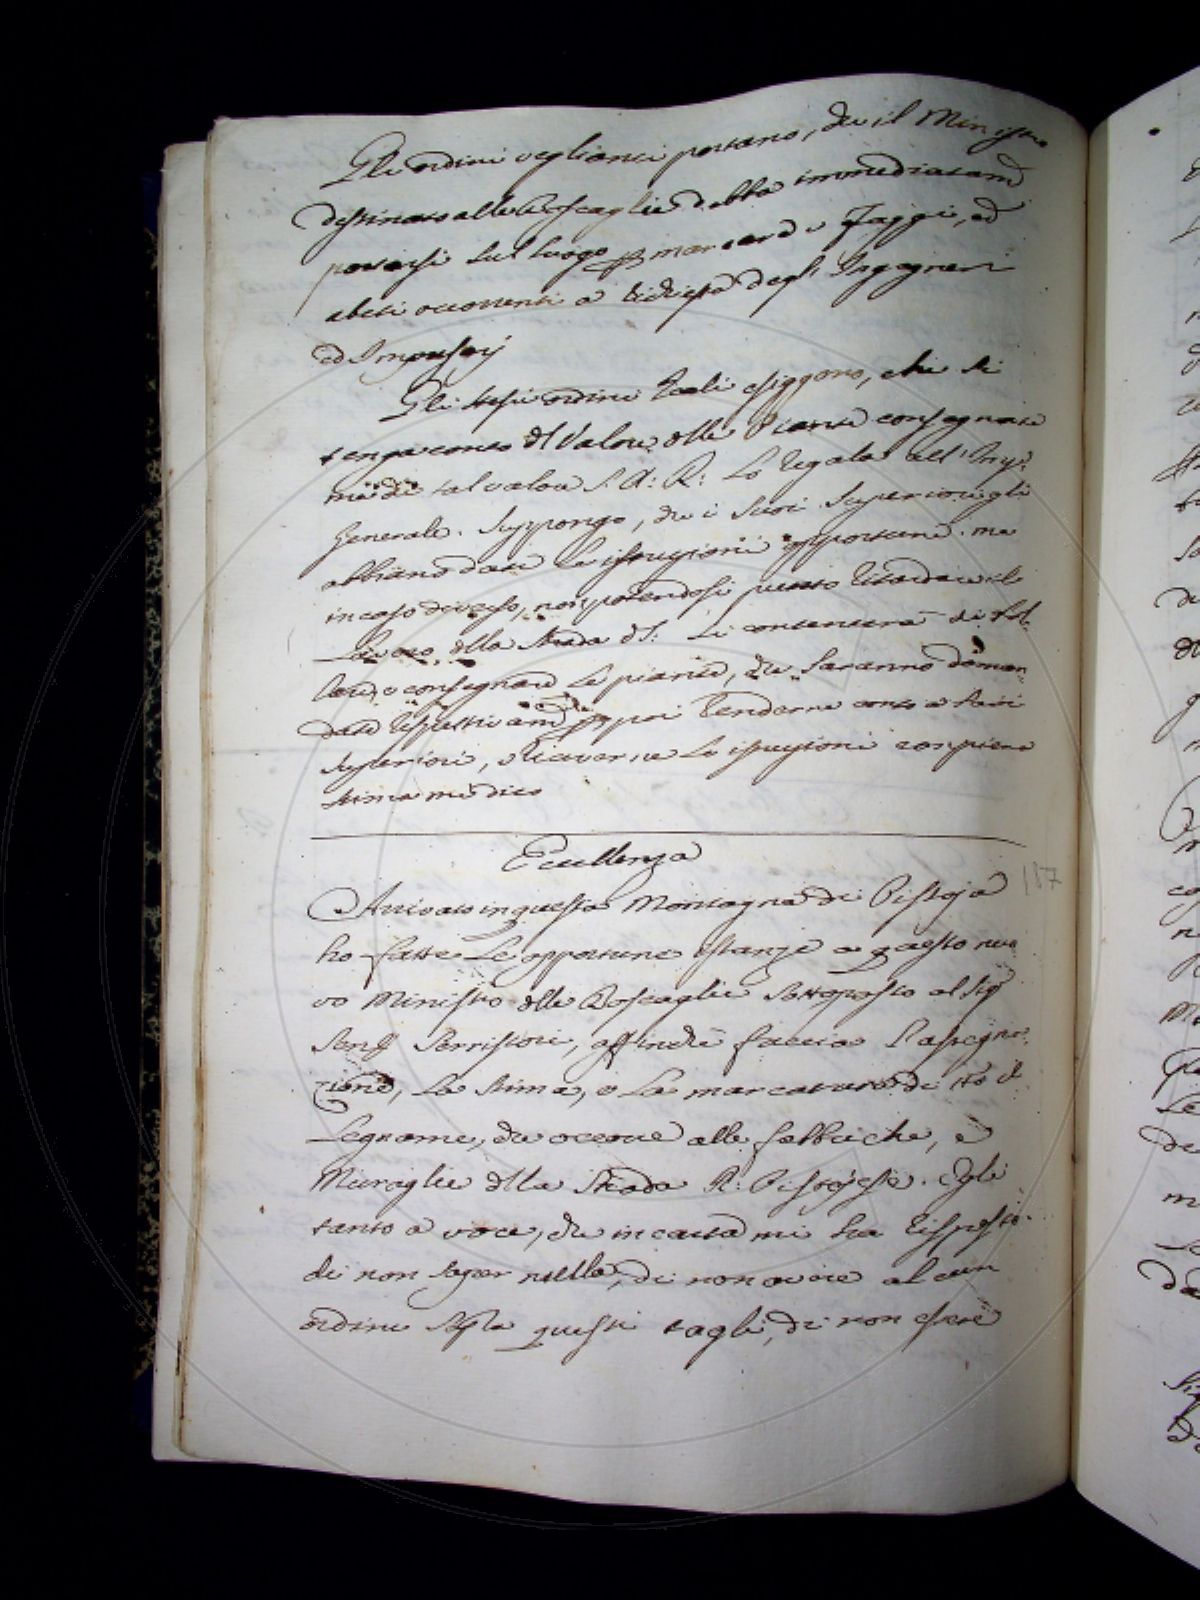 Gli ordini veglianti portano, che il Ministro
destinato alle Boscaglie debba immediatam.e
portarsi sul luogo p marcare i Faggi, ed
abeti occorrenti a richiesta degl' Ingegneri
ed Impresarj
Gli stessi ordini Reali esiggono, che si
tenga conto del Valore delle Piante consegnate
di tal valore S. A: R: Lo regala all'
Generale. Suppongo, che i Suoi Superiori gli
abbiano date Le istruzioni opportune. ma
in caso diverso, non potendosi punto ritardare il
Lavoro della Strada Si contenterà di
e consegnare Le piante, che Saranno doman-
date rispettivam.e p poi renderne conto a Suoi
Superiori, e riceverne Le istruzioni con piena
stima mi dico
Eccellenza
Arrivato in questa Montagna di Pistoja
187
ho fatte Le opportune istanze a questo nuo
vo Ministro delle Boscaglie Sottoposto al Sig
Sen. Serristori, affinchè faccia L'assegna-
zione, La Stima, e La marcatura di
Legname, che occorre alle fabbriche, e
Muraglie della Strada R: Pistojese. Egli
tanto a voce, che in carta mi ha risposto
di non saper nulla, di non avere alcun
ordine Sopra questi tagli, di non essere